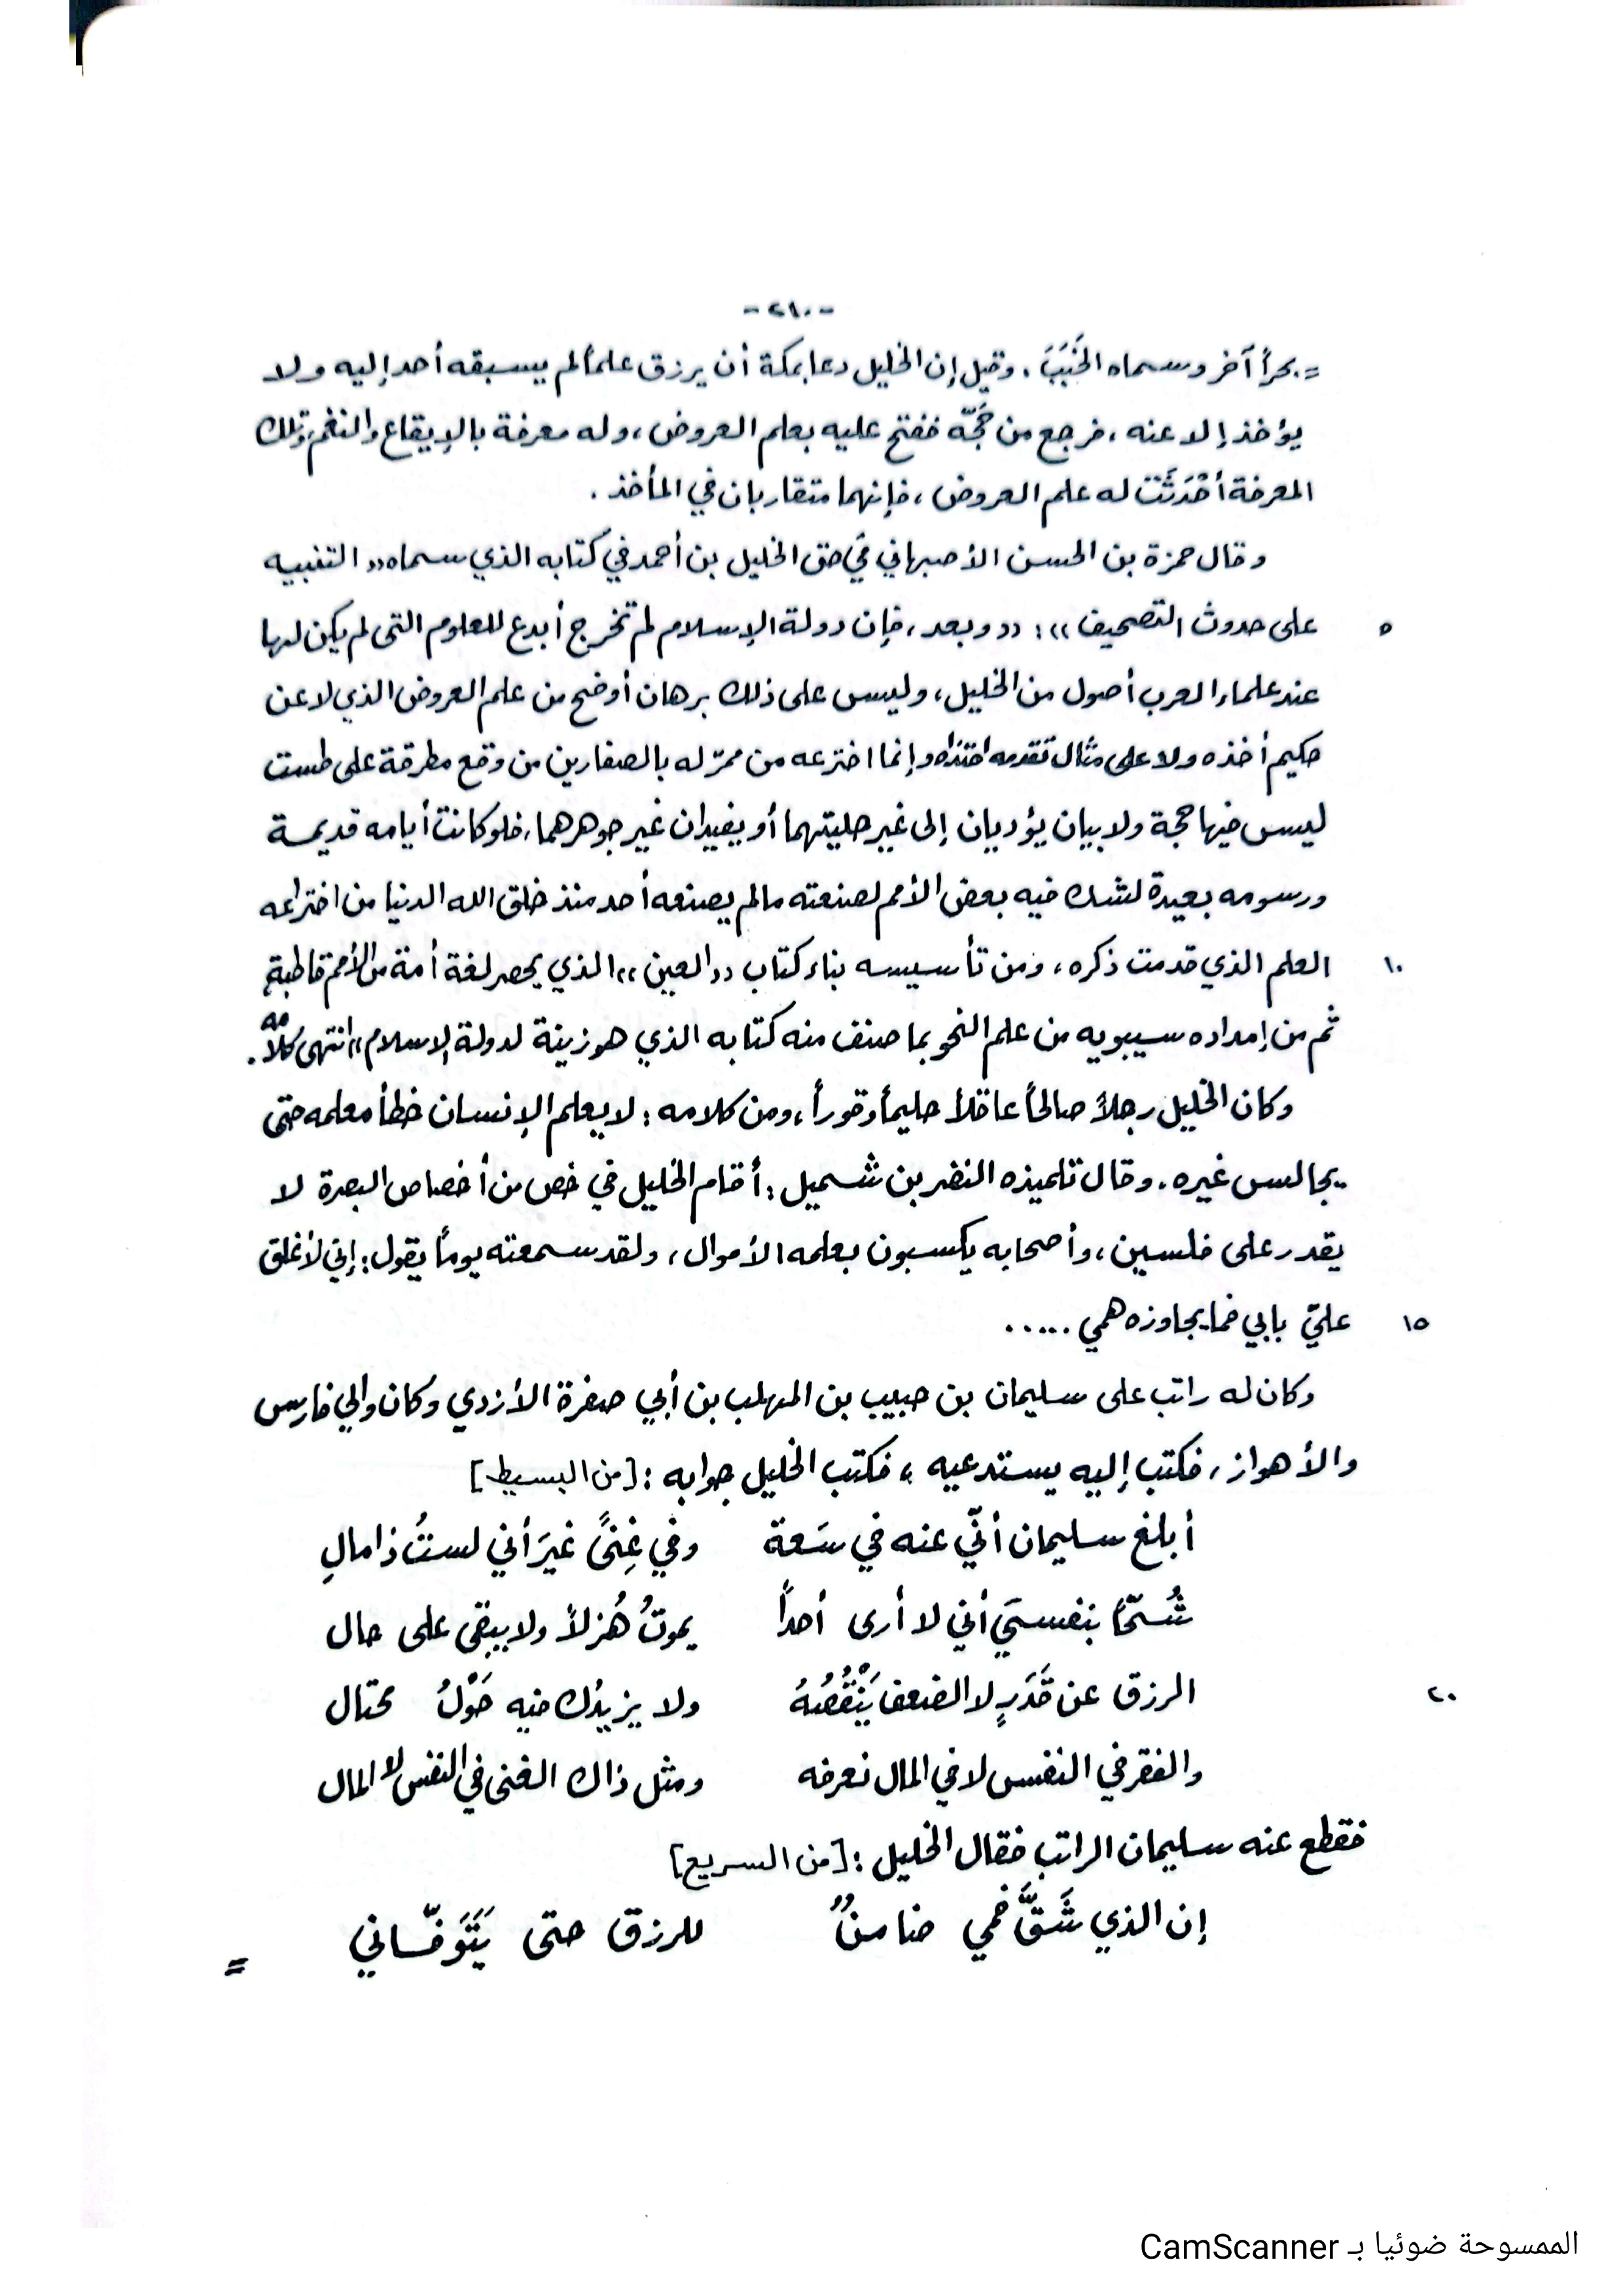 -٢١٠-
= بحراً آخر وسماه الخَبَبَ، وقيل إن الخليل دعا بمكة أن يرزق علماً لم يسبقه أحد إليه ولا
يؤخذ إلا عنه، فرجع من حَجّه ففتح عليه بعلم العروض، وله معرفة بالإيقاع والنغم، وتلك
المعرفة أَحْدَثَتْ له علم العروض، فإنهما متقاربان في المأخذ.
وقال حمزة بن الحسن الأصبهاني في حق الخليل بن أحمد في كتابه الذي سماه «التنبيه
٥ على حدوث التصحيف»: «وبعد، فإن دولة الإسلام لم تخرج أبدع للعلوم التي لم يكن لها
عند علماء العرب أصول من الخليل، وليس على ذلك برهان أوضح من علم العروض الذي لا عن
حكيم أخذه ولا على مثال تقدمه احتذاه وإنما اخترعه من ممرّ له بالصفارين من وقع مطرقة على طست
ليس فيها حجة ولا بيان يؤديان إلى غير حليتهما أو يفيدان غير جوهرهما، فلو كانت أيامه قديمة
ورسومه بعيدة لشك فيه بعض الأمم لصنعته ما لم يصنعه أحد منذ خلق الله الدنيا من اختراعه
١٠ العلم الذي قدمت ذكره، ومن تأسيسه بناء كتاب «العين» الذي يحصر لغة أمة من الأمم قاطبةِ
ثم من إمداده سيبويه من علم النحو بما صنف منه كتابه الذي هو زينة لدولة الإسلام» انتهى كلامه.
وكان الخليل رجلاً صالحاً عاقلاً حليماً وقوراً، ومن كلامه: لا يعلم الإنسان خطأ معلمه حتى
يجالس غيره. وقال تلميذه النضر بن شميل: أقام الخليل في خص من أخصاص البصرة لا
يقدر على فلسين، وأصحابه يكسبون بعلمه الأموال، ولقد سمعته يوماً يقول: إني لأغلق
١٥ عليّ بابي فما يجاوزه همي .....
وكان له راتب على سليمان بن حبيب بن المهلب بن أبي صفرة الأزدي وكان والي فارس
والأهواز، فكتب إليه يستدعيه، فكتب الخليل جوابه: [من البسيط]
أبلغ سليمان أنّي عنه في سَعة وفي غِنىً غيرَ أني لستُ ذا مالِ
شُحّاً بنفسيَ أني لا أرى أحداً يموتُ هُزلاً ولا يبقى على حال
٢٠ الرزق عن قَدَرٍ لا الضعف يَنْقُصُهُ ولا يزيدُك فيه حَوْلُ محتال
والفقر في النفس لا في المال نعرفه ومثل ذاك الغنى في النفس لا المال
فقطع عنه سليمان الراتب فقال الخليل: [من السريع]
إن الذي شَقَّ فمي ضامنٌ للرزق حتى يَتَوَفّاني
=
الممسوحة ضوئيا بـ CamScanner